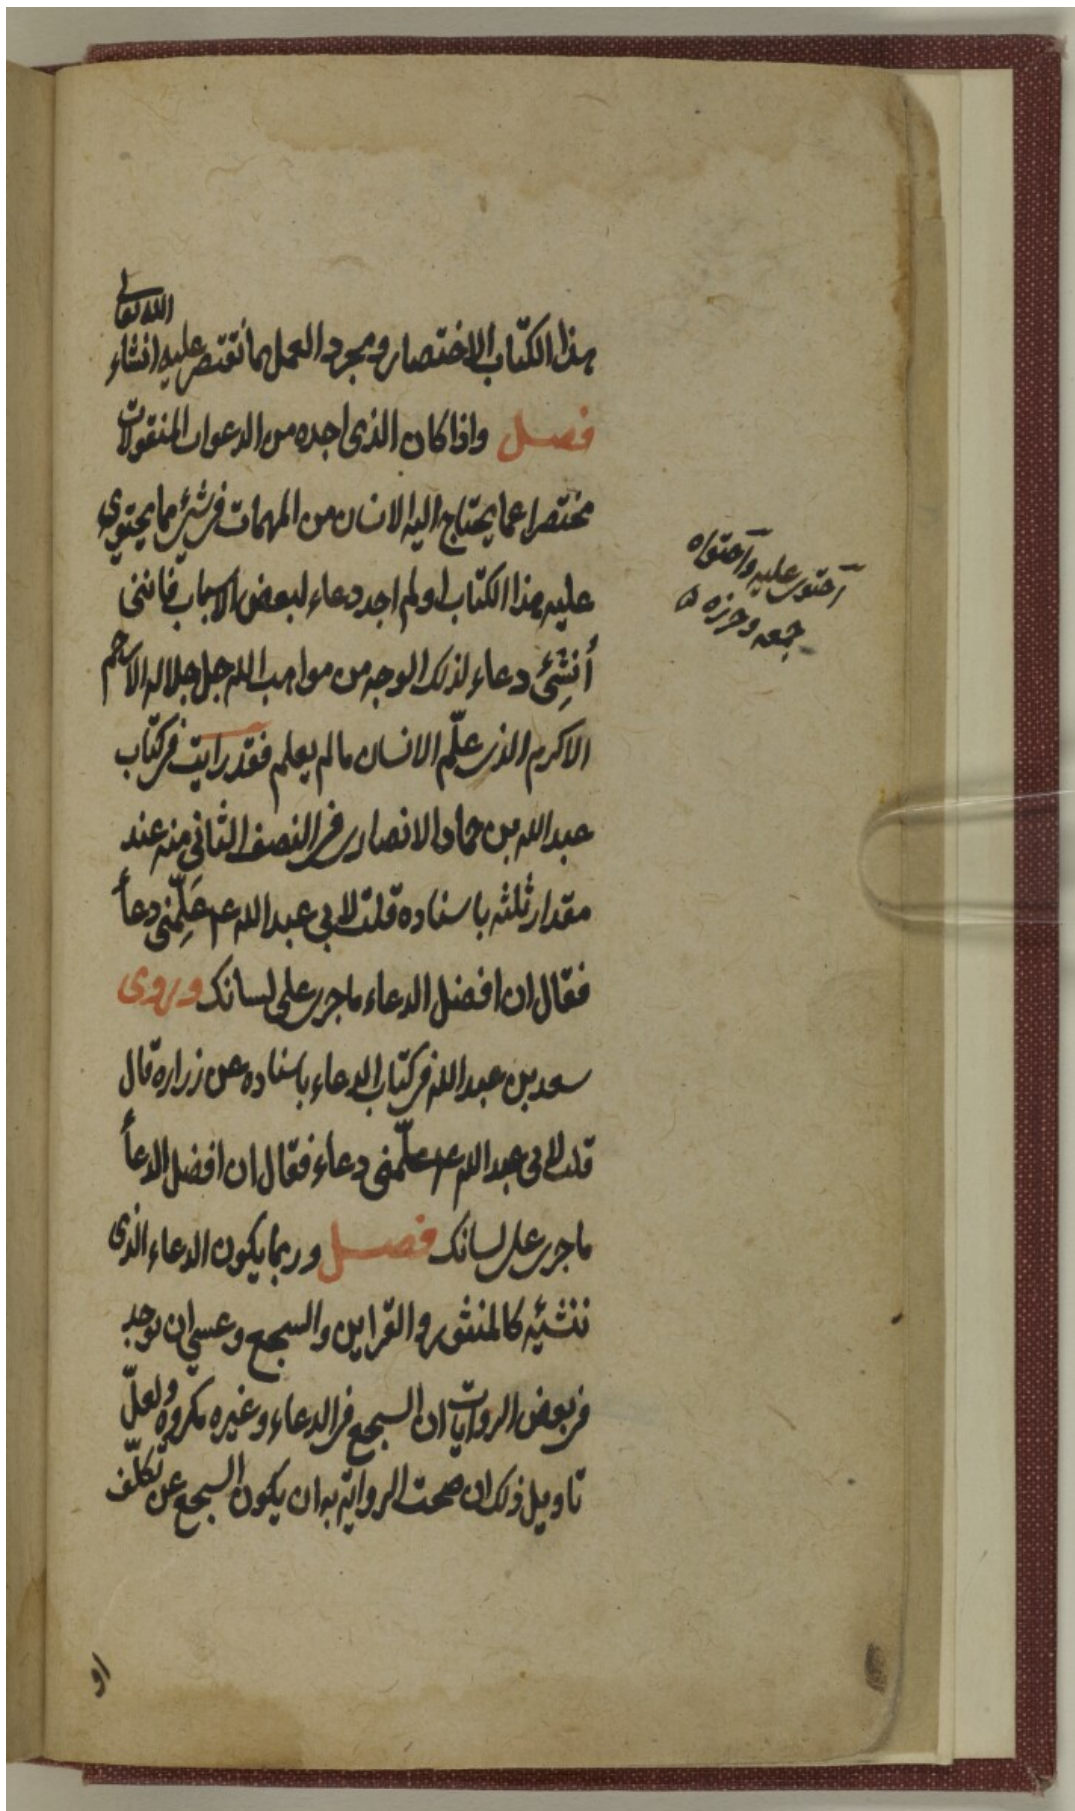 الله تعالى
هذا الكتاب الاختصار ومجرد العمل بما نقتصر عليه انشاء
فصل واذا كان الذى اجده من الدعوات المنقولات
مختصرا عما يحتاج اليه الانسان من المهمات فى شئ مما يحتوى
عليه هذا الكتاب او لم اجد دعاء لبعض الاسباب فاننى
أنشئ دعاء لذلك الوجه من مواهب الله جل جلاله الارحم
الاكرم الذى علّم الانسان ما لم يعلم فقد رايت فى كتاب
عبد الله بن حماد الانصارى فى النصف الثانى منه عند
مقدار ثلثه باسناده قلت لابى عبد الله عم علّمنى دعأ
فقال ان افضل الدعاء ما جرى على لسانك وروى
سعد بن عبد الله فى كتاب الدعاء باسناده عن زراره قال
قلت لابى عبد الله عم علّمنى دعاء فقال ان افضل الدعأ
ما جرى على لسانك فصل وربما يكون الدعاء الذى
ننشئه كالمنثور والقراين والسجع وعسى ان يوجد
فى بعض الروايات ان السجع فى الدعاء وغيره مكروه ولعلّ
تاويل ذلك ان صحت الرواية به ان يكون السجع عن تكلّف
او
احتوى عليه واحتواه
جمعه وحرزه ۵